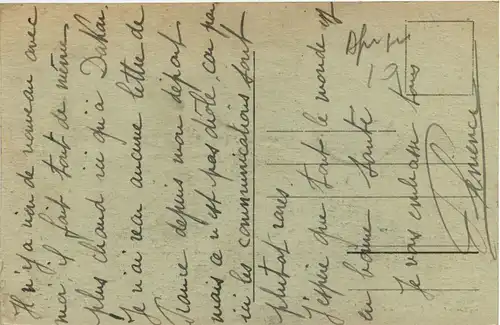 Il n'y a rien de nouveau avec
moi il fait tout de même
plus chaud ici qu'à Dakar.
Je n'ai reçu aucune lettre de
France depuis mon départ
mais ce n'est pas drôle, car par
ici les communications sont
plutot rares.
J'espère que tout le monde est
en bonne santé
Je vous embrasse tous